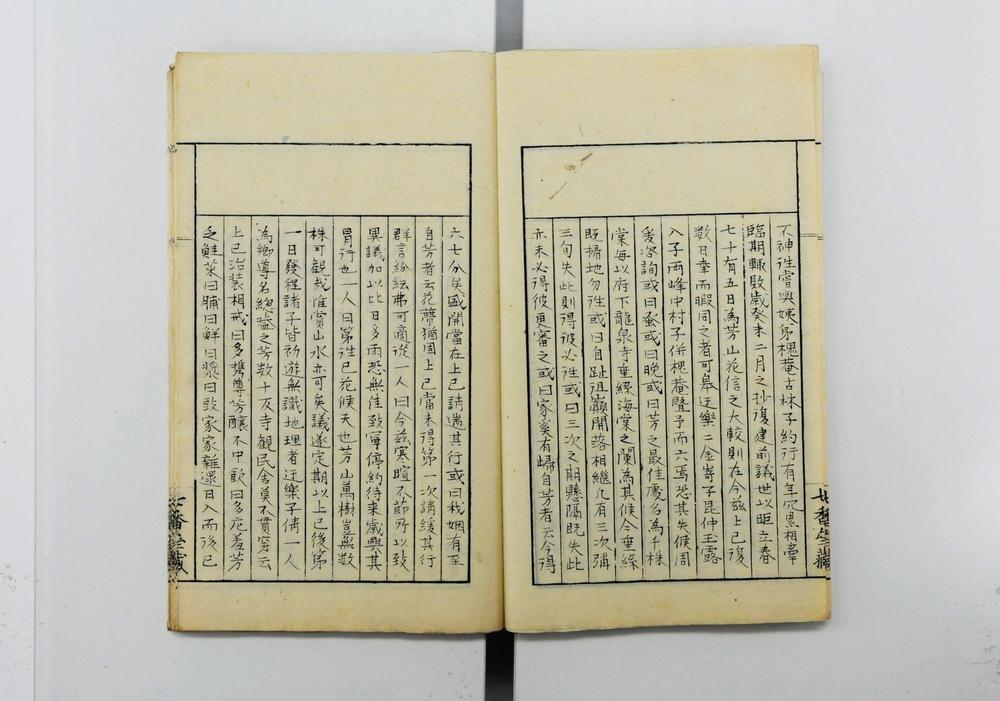 不神往嘗與姨弟槐菴古林子約行有年冗累相牽
臨期輙敗歲癸未二月之抄復建前議世以距立春
七十有五日為芳山花信之大較則在今茲上巳後
數日乗而暇同之者可皋迂樂二金嵜子昆仲玉露
入子両峰中村子併槐菴暨予而六焉恐其失候周
爰咨詢或曰蚤或曰晚或曰芳之最佳處名為千株
棠每以府下龍泉寺垂絲海棠之闌為其候今垂絲
既掃地勿往或曰自趾徂巔開落相繼凡有三次彌
三旬失此則得彼必往或曰三次之期懸隔既失此
亦未必得彼更審之或曰家奚有歸自芳者云今得
六七分矣盛開當在上巳請遄其行或曰我姻有至
自芳者云花蕚猶固上巳當未得第一次請緩其行
群言紛紜弗可適從一人曰今茲寒暄不節所以致
異議加以比日多雨恐無佳致寧停約待来歲與其
冐行也一人曰第往已花候天也芳山萬樹豈無數
株可觀哉惟賞山水亦可矣議遂定期以上巳後第
一日發程諸子皆初遊無識地理者迂樂子倩一人
為鄉導名總菴之芳数十反寺観民舎莫不貫穿云
上巳治装相戒曰多携尊芳釀不中飲曰多庀羞芳
乏鮭菜曰脯曰鮮曰漿曰豉家家雜還日入而後已